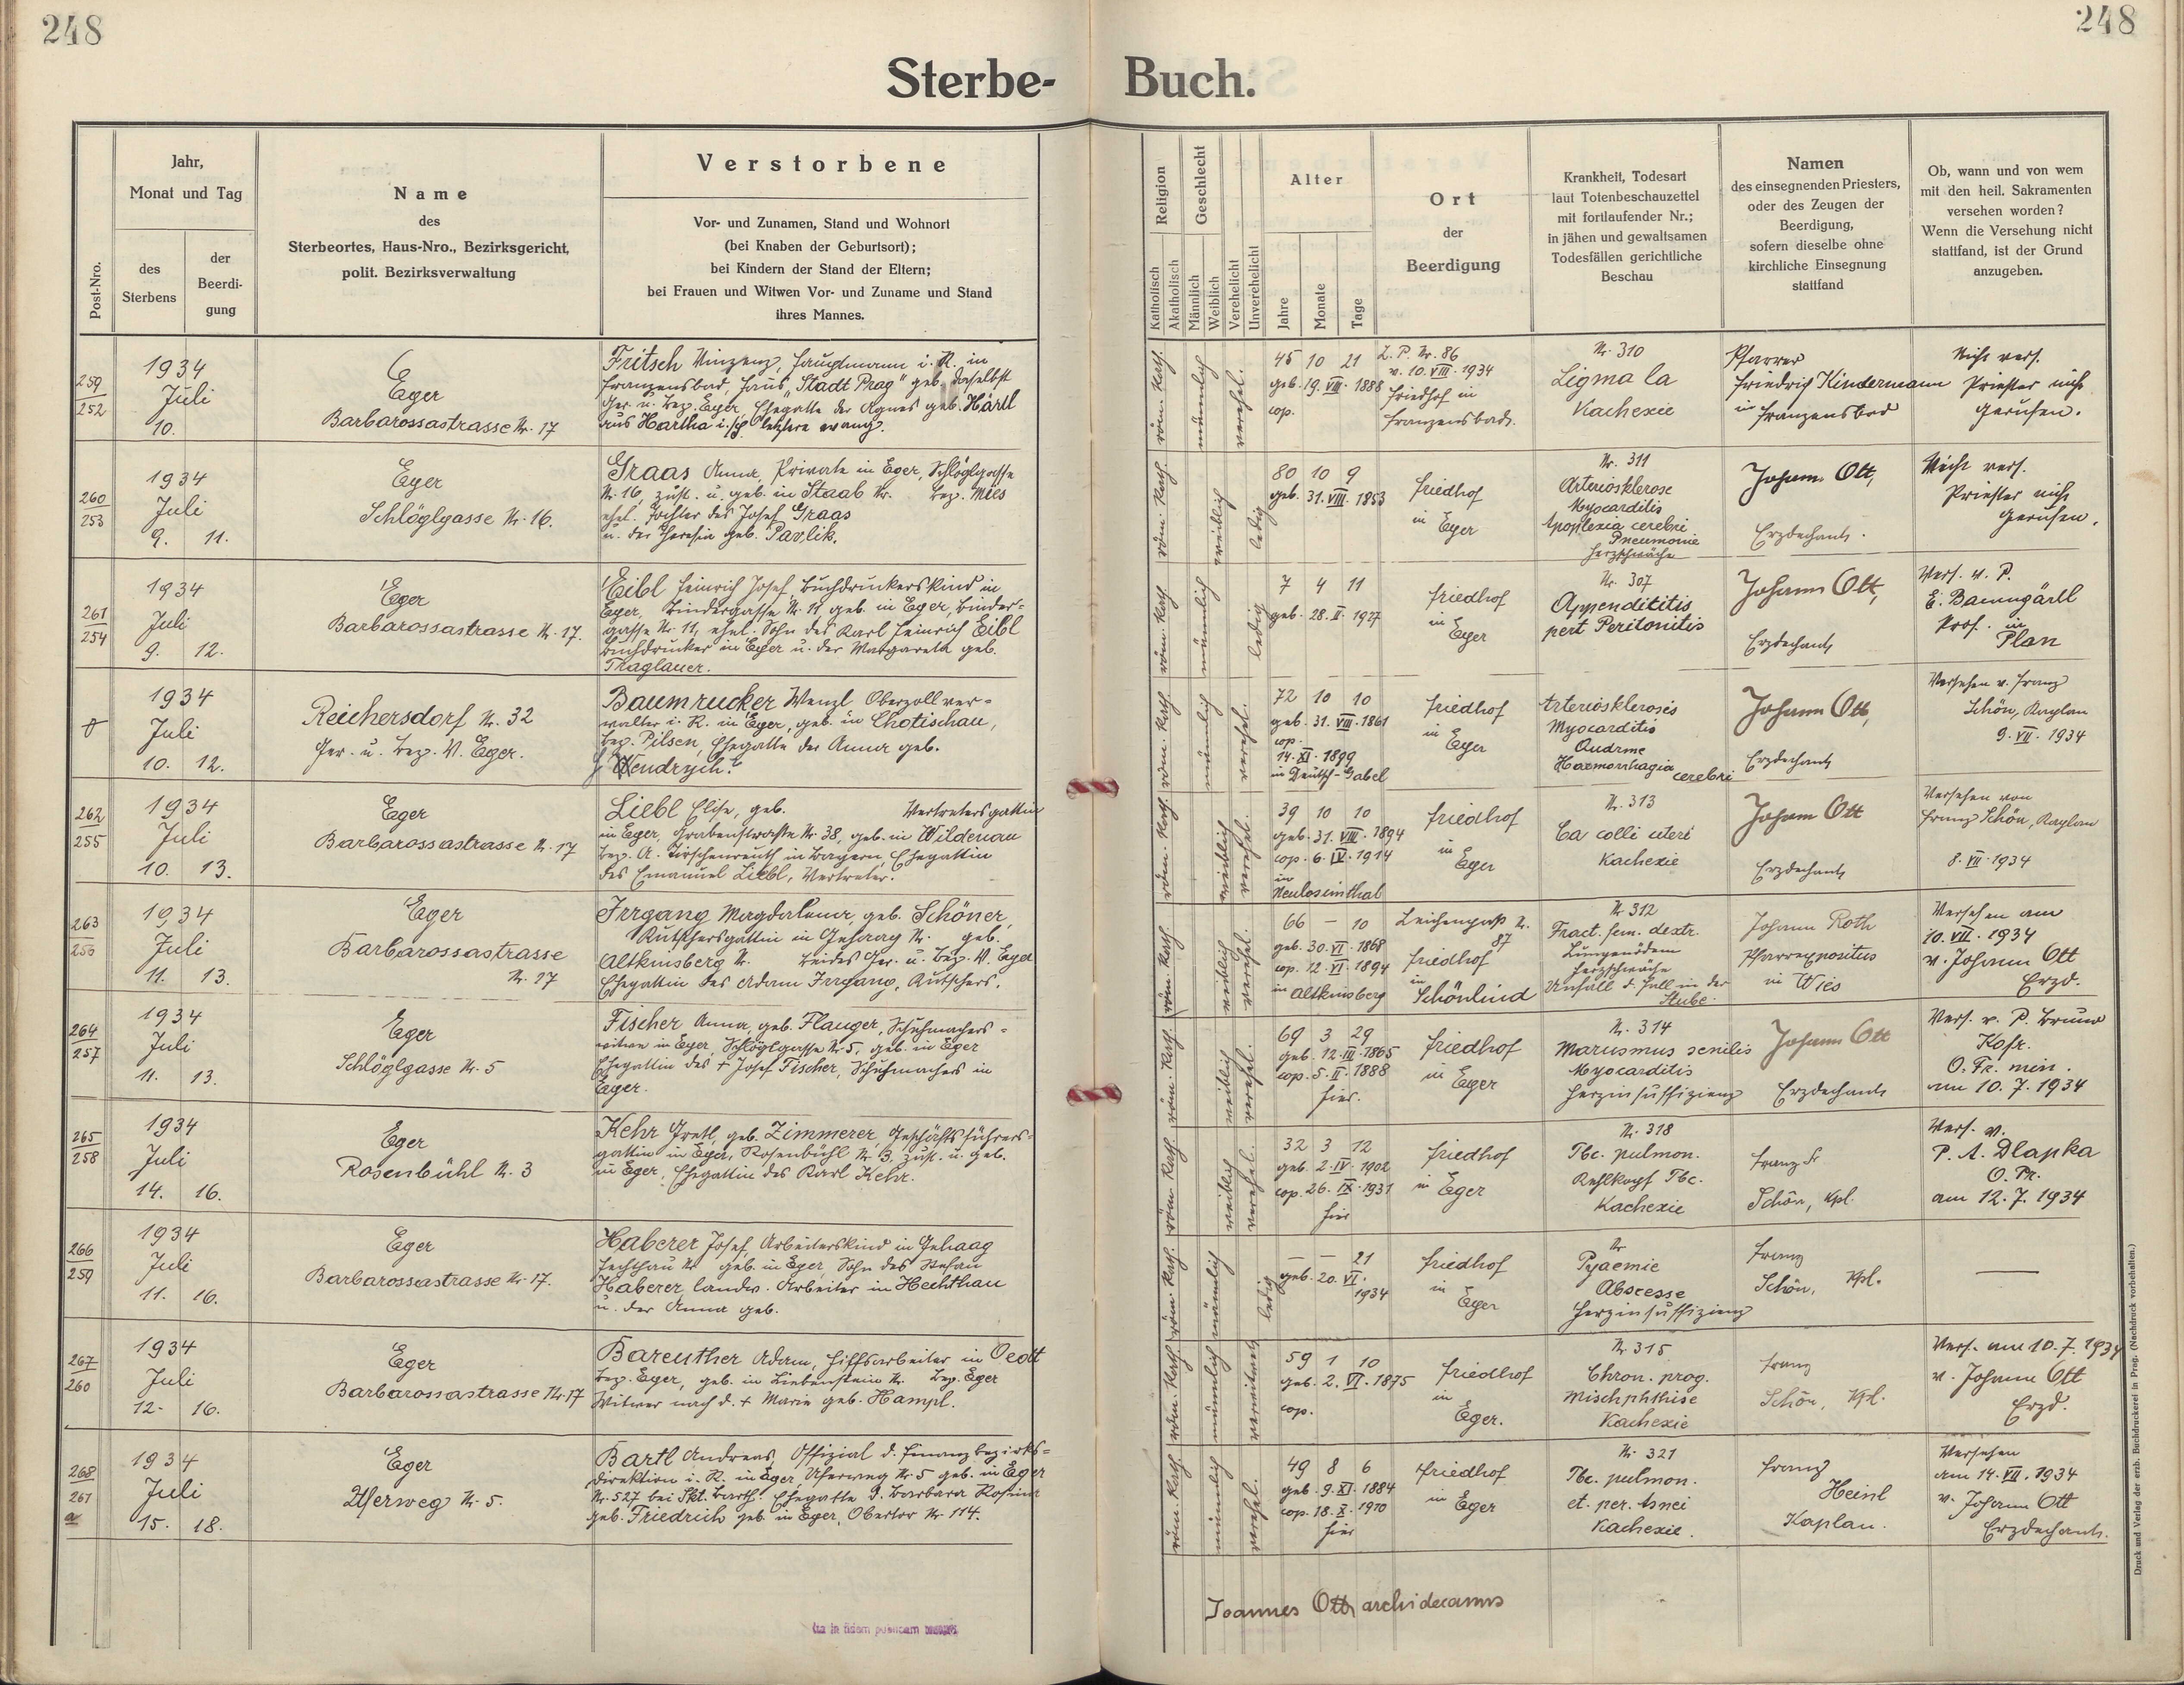 248
248
Sterbe- Buch.
Post-Nro.
Jahr,
Monat und Tag
des
Sterbens
der
Beerdi-
gung
Name
des
Sterbeortes, Haus-Nro., Bezirksgericht,
polit. Bezirksverwaltung
Verstorbene
Vor- und Zunamen, Stand und Wohnort
(bei Knaben der Geburtsort);
bei Kindern der Stand der Eltern;
bei Frauen und Witwen Vor- und Zuname und Stand
ihres Mannes.
Religion
Katholisch
Akatholisch
Geschlecht
Männlich
Weiblich
Verehelicht
Unverehelicht
Alter
Jahre
Monate
Tage
Ort
der
Beerdigung
Krankheit, Todesart
laut Totenbeschauzettel
mit fortlaufender Nr.;
in jähen und gewaltsamen
Todesfällen gerichtliche
Beschau
Namen
des einsegnenden Priesters,
oder des Zeugen der
Beerdigung,
sofern dieselbe ohne
kirchliche Einsegnung
stattfand
Ob, wann und von wem
mit den heil. Sakramenten
versehen worden?
Wenn die Versehung nicht
stattfand, ist der Grund
anzugeben.
259
252
1934
Juli
10.
Eger
Barbarossastrasse Nr. 17
Fritsch Vinzenz, Hauptmann i. R. in
Franzensbad, Haus "Stadt Prag" geb. daselbst
Ger. u. Bez. Eger, Ehegatte der Agnes geb. Härtl
aus Hartha letztere evang.
röm. kath.
männlich
verehel.
45 10 21
geb. 19. VIII. 1888
cop.
L. P. Nr. 86
v. 10. VIII. 1934
Friedhof in
Franzensbad.
Nr. 310
Sigma ca
Kachexie
Pfarrer
Friedrich Kindermann
in Franzensbad
Nicht vers.
Priester nicht
gerufen.
260
253
1934
Juli
9. 11.
Eger
Schlöglgasse Nr. 16.
Graas Anna, Private in Eger, Schlöglgasse
Nr. 16, zust. u. geb. in Staab Nr. Bez. Mies
ehel. Tochter des Josef Graas
u. der Theresia geb. Pavlik.
röm. kath.
weiblich
ledig
80 10 9
geb. 31. VIII. 1853
Friedhof
in Eger
Nr. 311
Arteriosklerose
Myocarditis
Apoplexia cerebri
Pneumonie
Herzschwäche
Johann Ott,
Erzdechant.
Nicht vers.
Priester nicht
gerufen.
261
254
1934
Juli
9. 12.
Eger
Barbarossastrasse Nr. 17.
Eibl Heinrich Josef, Buchdruckerskind in
Eger, Bindergasse Nr. 11, geb. in Eger, Binder-
gasse Nr. 11, ehel. Sohn des Karl Heinrich Eibl
Buchdrucker in Eger u. der Margareta geb.
Thaglauer.
röm. kath.
männlich
ledig
7 4 11
geb. 28. II. 1927
Friedhof
in
Eger
Nr. 307
Appendititis
pert Peritonitis
Johann Ott,
Erzdechant
Vers. v. P.
E. Baumgärtl
Prof. in
Plan
1934
Juli
10. 12.
Reichersdorf Nr. 32
Ger. u. Bez. V. Eger.
Baumrucker Wenzl Oberzollver-
walter i. R. in Eger, geb. in Chotischau,
Bez. Pilsen, Ehegatte der Anna geb.
Wendrych.
röm. kath.
männlich
verehel.
72 10 10
geb. 31. VIII. 1861
cop.
14. XI. 1899
in Deutsch-Gabel
Friedhof
in
Eger
Arteriosklerosis
Myocarditis
Haemorrhagia cerebri
Johann Ott,
Erzdechant
Versehen v. Franz
Schön, Kaplan
9. VII. 1934
262
255
1934
Juli
10. 13.
Eger
Barbarossastrasse Nr. 17
Liebl Elise, geb. Vertretersgattin
in Eger, Grabenstrasse Nr. 38, geb. in Wildenau
Bez. A. Tirschenreuth in Bayern, Ehegattin
des Emanuel Liebl, Vertreter.
röm. kath.
weiblich
verehel.
39 10 10
geb. 31. VIII. 1894
cop. 6. IV. 1914
in
Neulosimthal
Friedhof
in
Eger
Nr. 313
Ca colli uteri
Kachexie
Johann Ott
Erzdechant
Versehen von
Franz Schön, Kaplan
8. VII. 1934
263
256
1934
Juli
11. 13.
Eger
Barbarossastrasse
Nr. 17
Irrgang Magdalena, geb. Schöner,
Kutschersgattin in Gehaag Nr. geb.
Altkinsberg Nr. beides Ger. u. Bez. V. Eger
Ehegattin des Adam Irrgang, Kutschers.
röm. kath.
weiblich
verehel.
66 — 10
geb. 30. VI. 1868
cop. 12. VI. 1894
in Altkinsberg
Leichenpaß Nr.
87
Friedhof
in
Schönlind
Nr. 312
Fract. fem. dextr.
Lungenödem
Herzschwäche
Unfall d. Fall in der
Stube.
Johann Roth
Pfarrexpositus
in Wies
Versehen am
10. VII. 1934
v. Johann Ott
Erzd.
264
257
1934
Juli
11. 13.
Eger
Schlöglgasse Nr. 5
Fischer Anna, geb. Flauger, Schuhmachers-
witwe in Eger, Schlöglgasse Nr. 5, geb. in Eger
Ehegattin des † Josef Fischer, Schuhmachers in
Eger.
röm. kath.
weiblich
verehel.
69 3 29
geb. 12. III. 1865
cop. 5. II. 1888
hier.
Friedhof
in Eger
Nr. 314
Marasmus senilis
Myocarditis
Herzinsuffizienz
Johann Ott
Erzdechant
Vers. v. P. Bruno
O. Fr. min.
am 10. 7. 1934
265
258
1934
Juli
14. 16.
Eger
Rosenbühl Nr. 3
Kehr Gretl, geb. Zimmerer, Geschäftsführers-
gattin in Eger, Rosenbühl Nr. 3, zust. u. geb.
in Eger, Ehegattin des Karl Kehr.
röm. kath.
weiblich
verehel.
32 3 12
geb. 2. IV. 1902
cop. 26. IX. 1931
hier
Friedhof
in Eger
Nr. 318
Tbc. pulmon.
Kehlkopf Tbc.
Kachexie
Franz
Schön, Kpl.
Vers. v.
P. A. Dlapka
O. Pr.
am 12. 7. 1934
266
259
1934
Juli
11. 16.
Eger
Barbarossastrasse Nr. 17.
Haberer Josef, Arbeiterskind in Gehaag
Hechthau Nr. geb. in Eger, Sohn des Stefan
Haberer, landw. Arbeiter in Hechthau
u. der Anna geb.
röm. kath.
männlich
ledig
— — 21
geb. 20. VI.
1934
Friedhof
in
Eger
Nr.
Pyaemie
Abscesse
Herzinsuffizienz
Franz
Schön, Kpl.
—
267
260
1934
Juli
12. 16.
Eger
Barbarossastrasse Nr. 17
Bareuther Adam, Hilfsarbeiter in Oedt
Bez. Eger, geb. in Liebenstein Nr. Bez. Eger
Witwer nach d. † Marie geb. Hampl.
röm. kath.
männlich
verwitwet
59 1 10
geb. 2. VI. 1875
cop.
Friedhof
in
Eger.
Nr. 315
Chron. prog.
Mischphthise
Kachexie
Franz
Schön, Kpl.
Vers. am 10. 7. 1934
v. Johann Ott
Erzd.
268
261
a
1934
Juli
15. 18.
Eger
Uferweg Nr. 5.
Bartl Andreas, Offizial d. Finanzbezirks-
direktion i. R. in Eger, Uferweg Nr. 5 geb. in Eger
Nr. 527 bei Skt. Barth. Ehegatte d. Barbara Rosina
geb. Friedrich geb. in Eger, Obertor Nr. 114.
röm. kath.
männlich
verehel.
49 8 6
geb. 9. XI. 1884
cop. 18. X. 1910
hier
Friedhof
in Eger
Nr. 321
Tbc. pulmon.
Kachexie.
Franz
Heinl
Kaplan.
Versehen
am 14. VII. 1934
v. Johann Ott
Erzdechant.
Joannes Ott, archidecanus
Druck und Verlag der erzb. Buchdruckerei in Prag. (Nachdruck vorbehalten.)